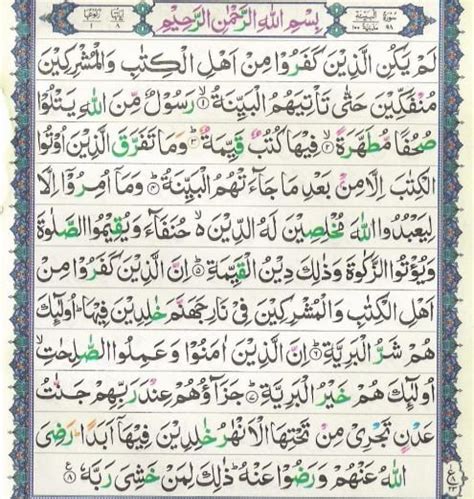 سُورَةُ الْبَيِّنَةِ ٩٨ مَدَنِيَّةٌ ١٠٠
بِسْمِ اللهِ الرَّحْمٰنِ الرَّحِيْمِ
اٰيَاتُهَا ٨ رُكُوْعُهَا ١
لَمْ يَكُنِ الَّذِيْنَ كَفَرُوْا مِنْ اَهْلِ الْكِتٰبِ وَالْمُشْرِكِيْنَ
مُنْفَكِّيْنَ حَتّٰى تَاْتِيَهُمُ الْبَيِّنَةُ ۙ‏﴿۱﴾ رَسُوْلٌ مِّنَ اللهِ يَتْلُوْا
صُحُفًا مُّطَهَّرَةً ۙ‏﴿۲﴾ فِيْهَا كُتُبٌ قَيِّمَةٌ ؕ‏﴿۳﴾ وَمَا تَفَرَّقَ الَّذِيْنَ اُوْتُوا
الْكِتٰبَ اِلَّا مِنْۢ بَعْدِ مَا جَآءَتْهُمُ الْبَيِّنَةُ ؕ‏﴿۴﴾ وَمَاۤ اُمِرُوْۤا اِلَّا
لِيَعْبُدُوا اللهَ مُخْلِصِيْنَ لَهُ الدِّيْنَ ۙ حُنَفَآءَ وَيُقِيْمُوا الصَّلٰوةَ
وَيُؤْتُوا الزَّكٰوةَ وَذٰلِكَ دِيْنُ الْقَيِّمَةِ ؕ‏﴿۵﴾ اِنَّ الَّذِيْنَ كَفَرُوْا مِنْ
اَهْلِ الْكِتٰبِ وَالْمُشْرِكِيْنَ فِيْ نَارِ جَهَنَّمَ خٰلِدِيْنَ فِيْهَا ؕ اُولٰٓئِكَ
هُمْ شَرُّ الْبَرِيَّةِ ؕ‏﴿۶﴾ اِنَّ الَّذِيْنَ اٰمَنُوْا وَعَمِلُوا الصّٰلِحٰتِ ۙ
اُولٰٓئِكَ هُمْ خَيْرُ الْبَرِيَّةِ ؕ‏﴿۷﴾ جَزَآؤُهُمْ عِنْدَ رَبِّهِمْ جَنّٰتُ
عَدْنٍ تَجْرِيْ مِنْ تَحْتِهَا الْاَنْهٰرُ خٰلِدِيْنَ فِيْهَاۤ اَبَدًا ؕ رَضِيَ
اللهُ عَنْهُمْ وَرَضُوْا عَنْهُ ؕ ذٰلِكَ لِمَنْ خَشِيَ رَبَّهٗ ﴿۸﴾